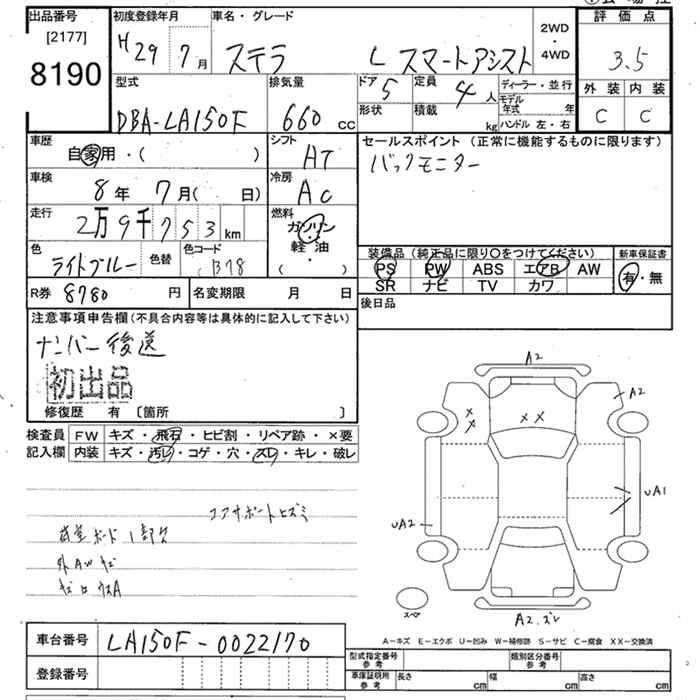 出品番号
[2177]
8190
初度登録年月
H 29年 7月
車名・グレード
ステラ L スマートアシスト
2WD
・
4WD
評価点
3.5
外装 内装
C C
型式
DBA-LA150F
排気量
660 cc
ドア 5
形状
定員 4人
積載 kg
ディーラー・並行
モデル年式 年
ハンドル 左・右
車歴
自家用・( )
シフト
AT
セールスポイント (正常に機能するものに限ります)
バックモニター
車検
8年 7月( 日)
冷房
AC
走行
2万9千753km
燃料
ガソリン
軽・油
( )
色
ライトブルー
色替
色コード
B78
装備品 (純正品に限り○をつけてください)
PS PW ABS エアB AW
SR ナビ TV カワ
新車保証書
有・無
R券 8780円
名変期限 月 日
後日品
注意事項申告欄(不具合内容等は具体的に記入して下さい)
ナンバー後送
初出品
修復歴 有 [箇所 ]
検査員
記入欄
FW キズ・飛石・ヒビ割・リペア跡・×要
内装 キズ・汚レ・コゲ・穴・スレ・キレ・破レ
コアサポートヒズミ
外AWキズ
A2
A2
××
××
UA1
UA2
スペア
A2.ズレ
A-キズ E-エクボ U-凹み W-補修跡 S-サビ C-腐食 XX-交換済
車台番号 LA150F-0022170
登録番号
型式指定番号
参考
類別区分番号
参考
車庫証明用
参考
長さ cm
幅 cm
高さ cm